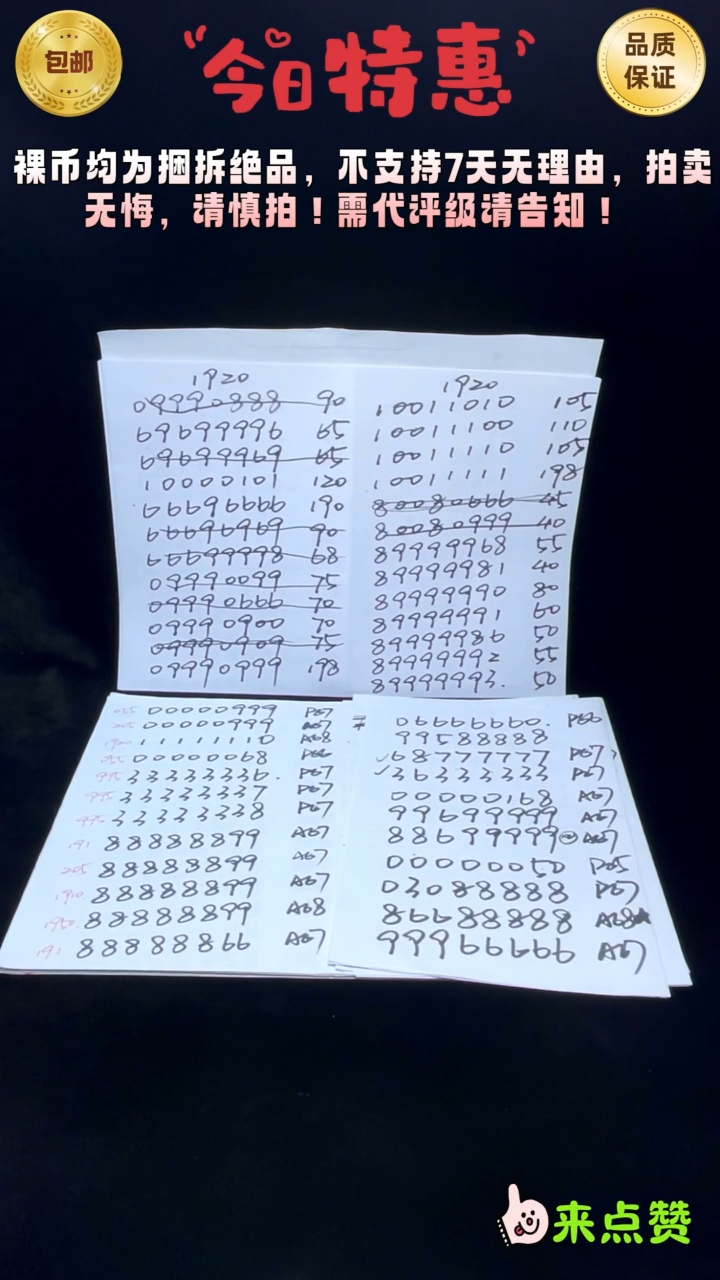 包邮
今日特惠
品质
保证
裸币均为捆拆绝品，不支持7天无理由，拍卖
无悔，请慎拍！需代评级请告知！
1920
09990888 90
69699996 65
69699969 65
10000101 120
66696666 190
66696969 90
66699998 68
09990099 75
09990666 70
09990900 70
09990909 75
09990999 198
1920
10011010 105
10011100 110
10011110 105
10011111 198
80080666 45
80080999 40
89999968 55
89999981 40
89999990 80
89999991 60
89999986 50
89999992 55
89999993. 50
055 00000999 P67
205 00000999 A67
1920 11111110 A68
00000068
995 33333336. P67
995 33333337 P67
995 33333338 P67
191 88888899 A67
205 88888899 A67
1910 88888899 A67
1980. 88888899 A68
191 88888866 A67
06666660. P66
99588888
68777777 P67
36333333 P67
00000168 A67
99699999 A67
88699999 A67
00000050 P65
03088888 P67
86688888 A68
99966666 A67
来点赞